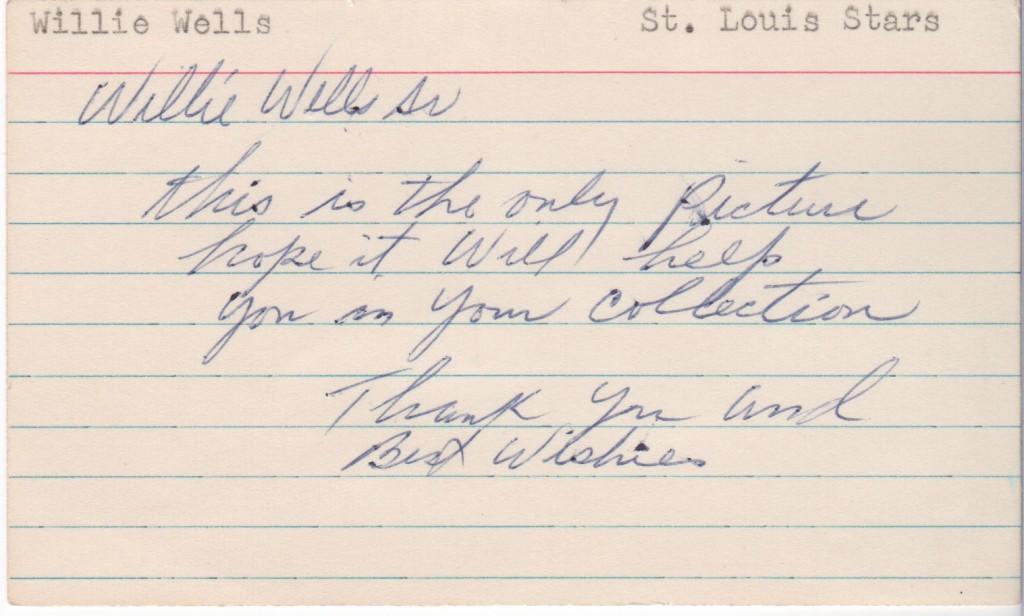 Willie Wells St. Louis Stars
Willie Wells Sr
this is the only Picture
hope it Will help
you in your collection
Thank you and
Best Wishies